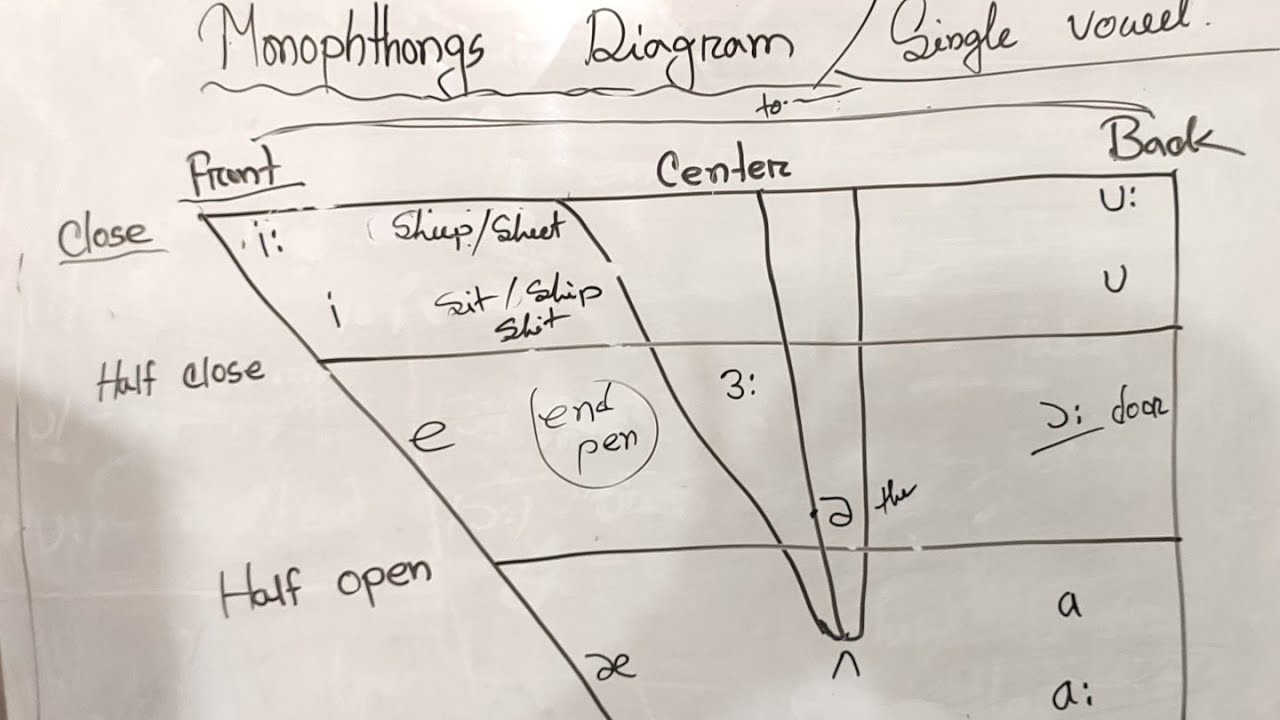 Monophthongs Diagram / Single vowel.
to
Front Center Back
Close i: Sheep/Sheet U:
i Sit / Ship U
Shit
Half close
e end 3: Ɔ: door
pen
ə the
Half open
a
æ ʌ
a: